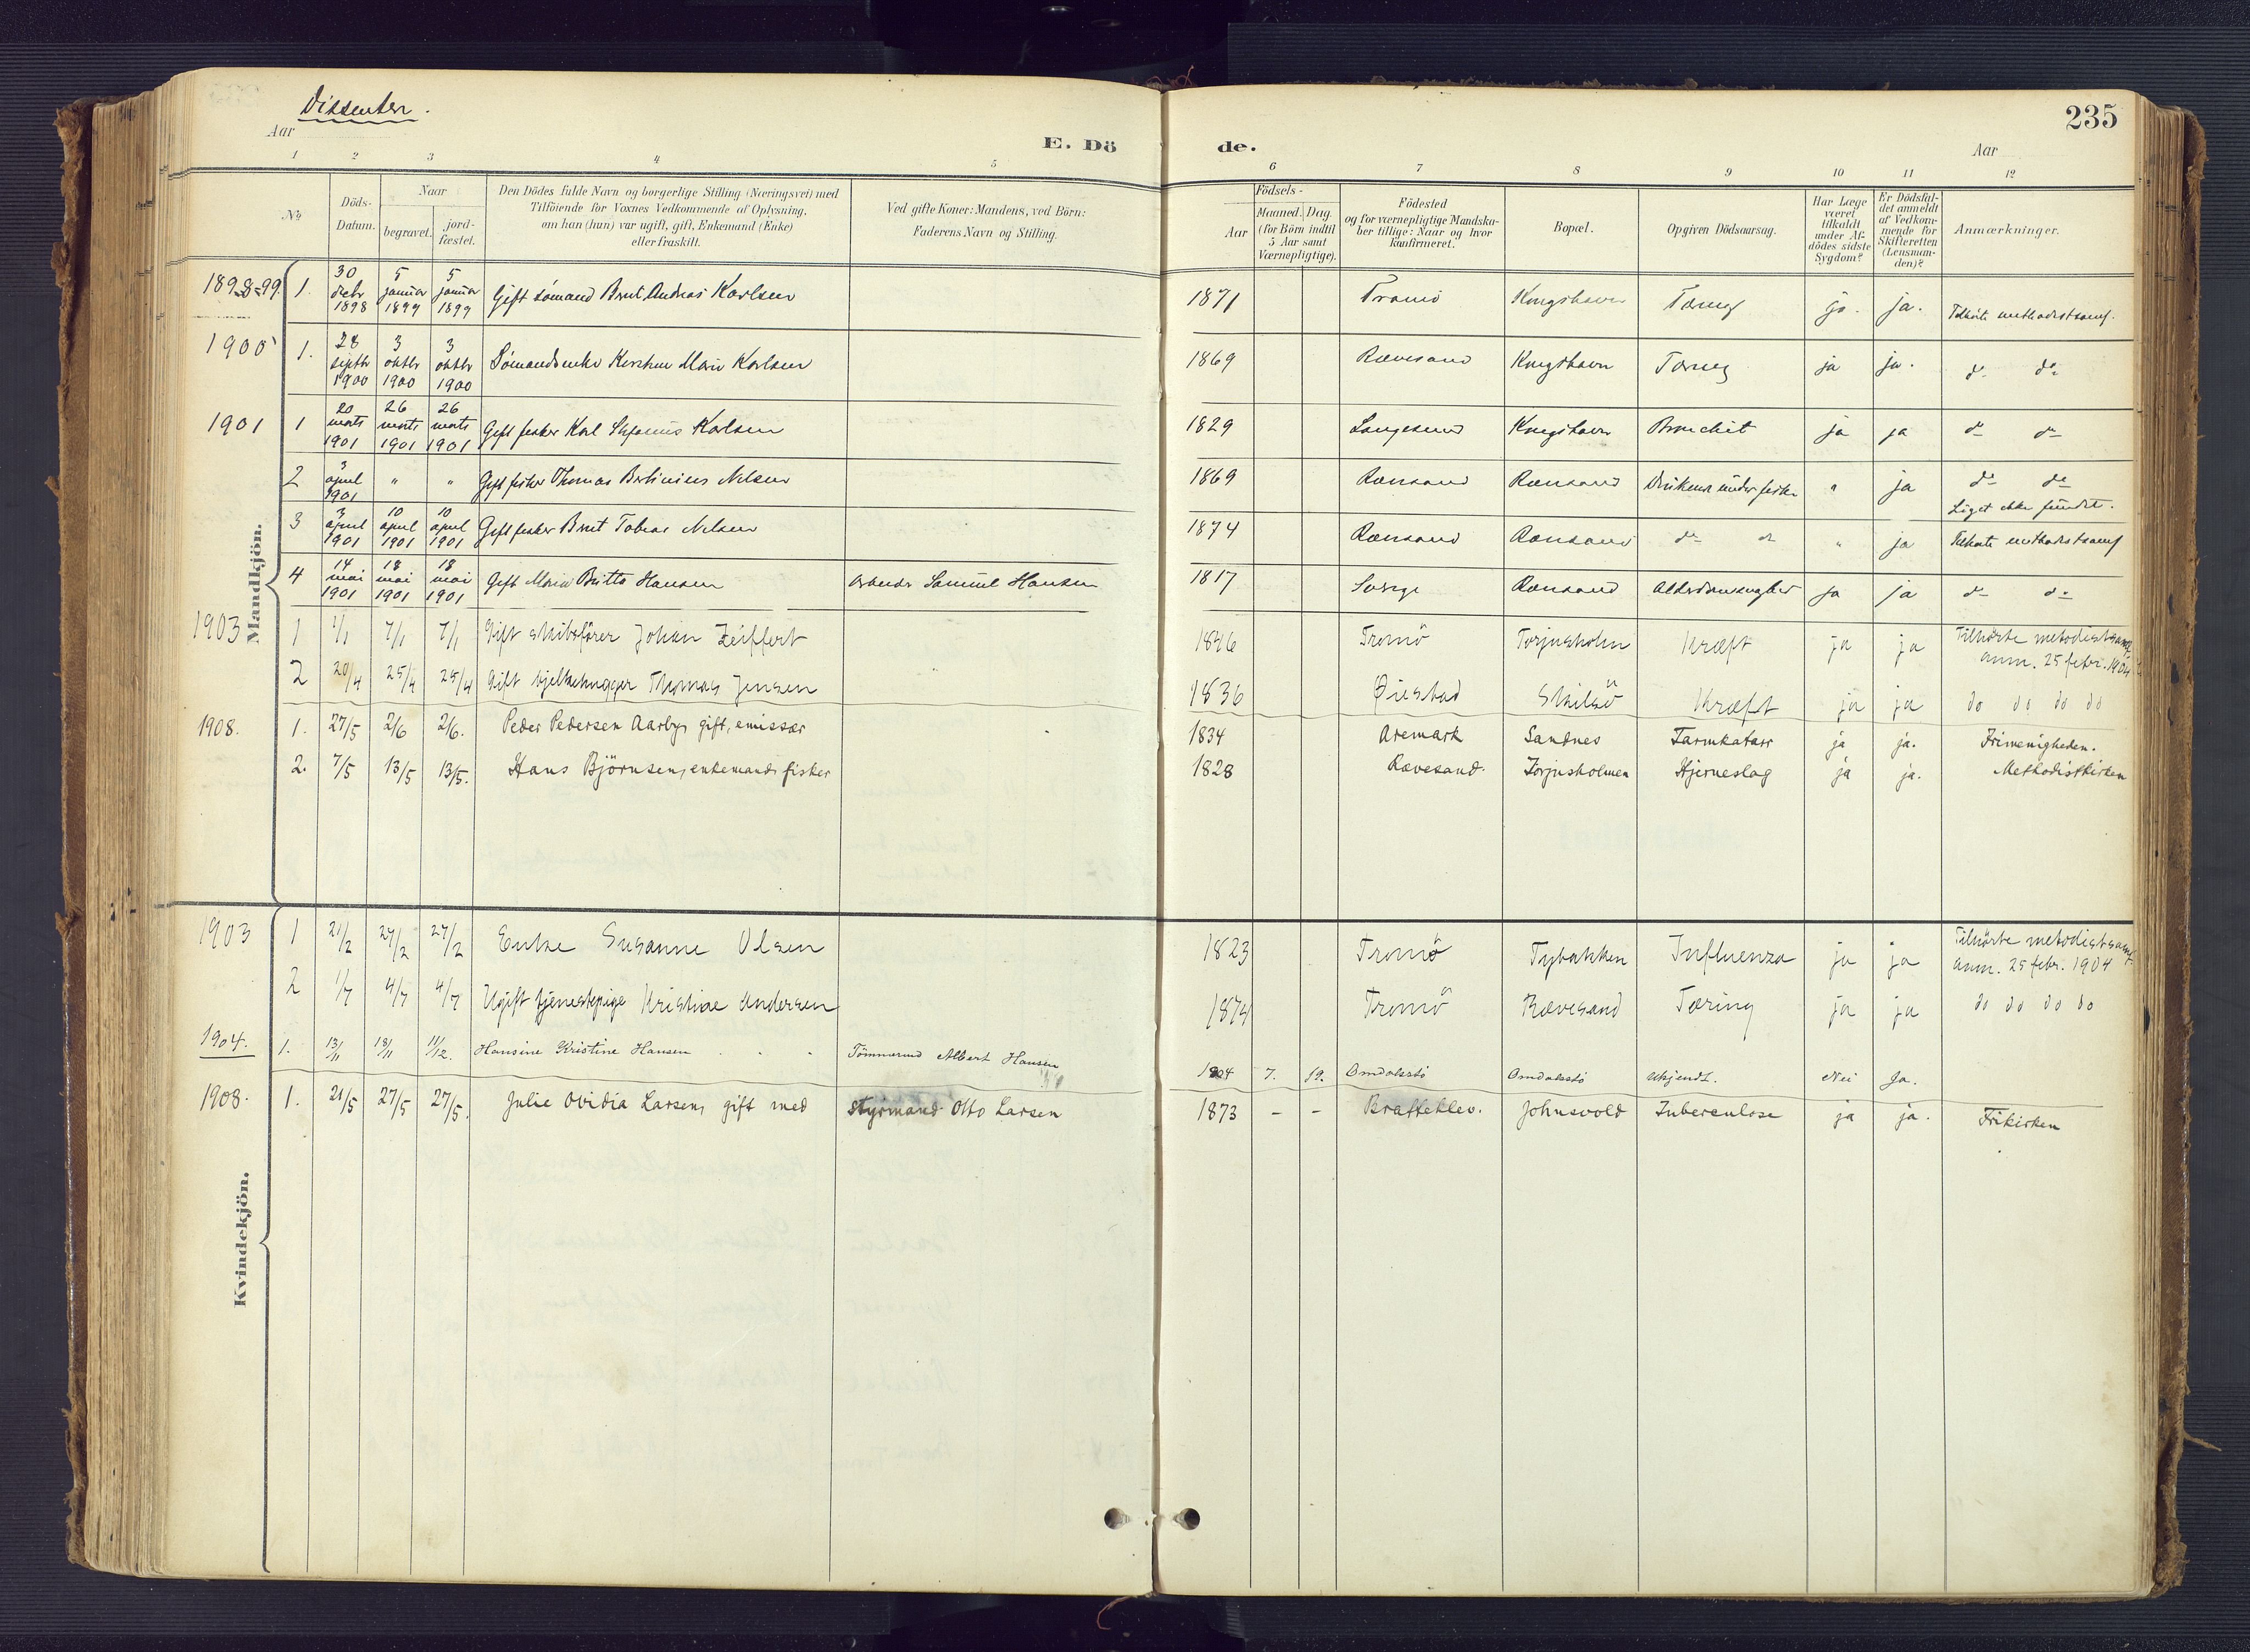 Dissenter.
Aar
E. Dö
de.
235
Aar
1 2 3 4 5 6 7 8 9 10 11 12
No.
Döds-
Datum.
Naar
begravet.
jord-
fæstet.
Den Dödes fulde Navn og borgerlige Stilling (Næringsvei) med
Tilföiende for Voxnes Vedkommende af Oplysning,
om han (hun) var ugift, gift, Enkemand (Enke)
eller fraskilt.
Ved gifte Koner: Mandens, ved Börn:
Faderens Navn og Stilling.
Födsels-
Aar
Maaned. Dag.
(for Börn indtil
5 Aar samt
Værnepligtige).
Födested
og for værnepligtige Mandska-
ber tillige: Naar og hvor
konfirmeret.
Bopæl.
Opgiven Dödsaarsag.
Har Læge
været
tilkaldt
under Af-
dödes sidste
Sygdom?
Er Dödsfal-
det anmeldt
af Vedkom-
mende for
Skifteretten
(Lensman-
den)?
Anmærkninger.
Mandkjön.
1898-99 1. 30 decbr 1898 5 januar 1899 5 januar 1899 Gift sömand Bernt Andreas Karlsen 1871 Tromö Kongshavn Tæring ja. ja. Tilhörte methodistsamf.
1900 1. 28 septbr 1900 3 oktbr 1900 3 oktbr 1900 Sömandsenke Kirstine Marie Karlsen 1869 Rævesand Kongshavn Tæring ja ja. do do
1901 1 20 marts 1901 26 marts 1901 26 marts 1901 Gift fisker Karl Stefanus Karlsen 1829 Langesund Kongshavn Bronchit ja ja do do
2 3 april 1901 " " Gift fisker Thomas Bertinius Nilsen 1869 Rævesand Rævesand Druknede under fiske " ja do do
Liget ikke fundet.
3 3 april 1901 10 april 1901 10 april 1901 Gift fisker Bernt Tobias Nilsen 1874 Rævesand Rævesand do do " ja Tilhörte methodistsamf
4 14 mai 1901 18 mai 1901 18 mai 1901 Gift Maria Britta Hansen arbeider Samuel Hansen 1817 Sverige Rævesand Alderdomssvaghed ja ja do do
1903 1 1/1 7/1 7/1 Gift skibsförer Johan Zeiffert 1846 Tromö Torjusholm Kræft ja ja Tilhörte metodistsamf.
anm. 25 febr. 1904
2 20/4 25/4 25/4 Gift bjelkehugger Thomas Jensen 1836 Øiestad Skilsö Kræft ja ja do do do do
1908. 1. 27/5 2/6 2/6. Peder Pedersen Aarby, gift, emissær 1834 Aremark Sandnes Tarmkatarr ja ja. Frimenigheden.
2. 7/5 13/5 13/5. Hans Björnsen, enkemand, fisker 1828 Rævesand. Torjusholmen Hjerneslag ja ja. Methodistkirken
Kvindekjön.
1903 1 21/2 27/2 27/2 Enke Susanne Olsen 1823 Tromö Tybakken Influenza ja ja Tilhörte metodistsamf.
anm. 25 febr. 1904
2 1/7 4/7 4/7 Ugift tjenestepige Kristine Andersen 1874 Tromö Rævesand Tæring ja ja do do do do
1904. 1. 13/11 18/11 11/12. Hansine Kristine Hansen Tömmermd Albert Hansen 1904 7. 19. Omdalsstö Omdalsstö Ukjendt. Nei Ja.
1908. 1. 21/5 27/5 27/5. Julie Ovidia Larsen, gift med styrmand Otto Larsen 1873 - - Bratteklev. Johnsvold Tuberculose ja ja. Frikirken